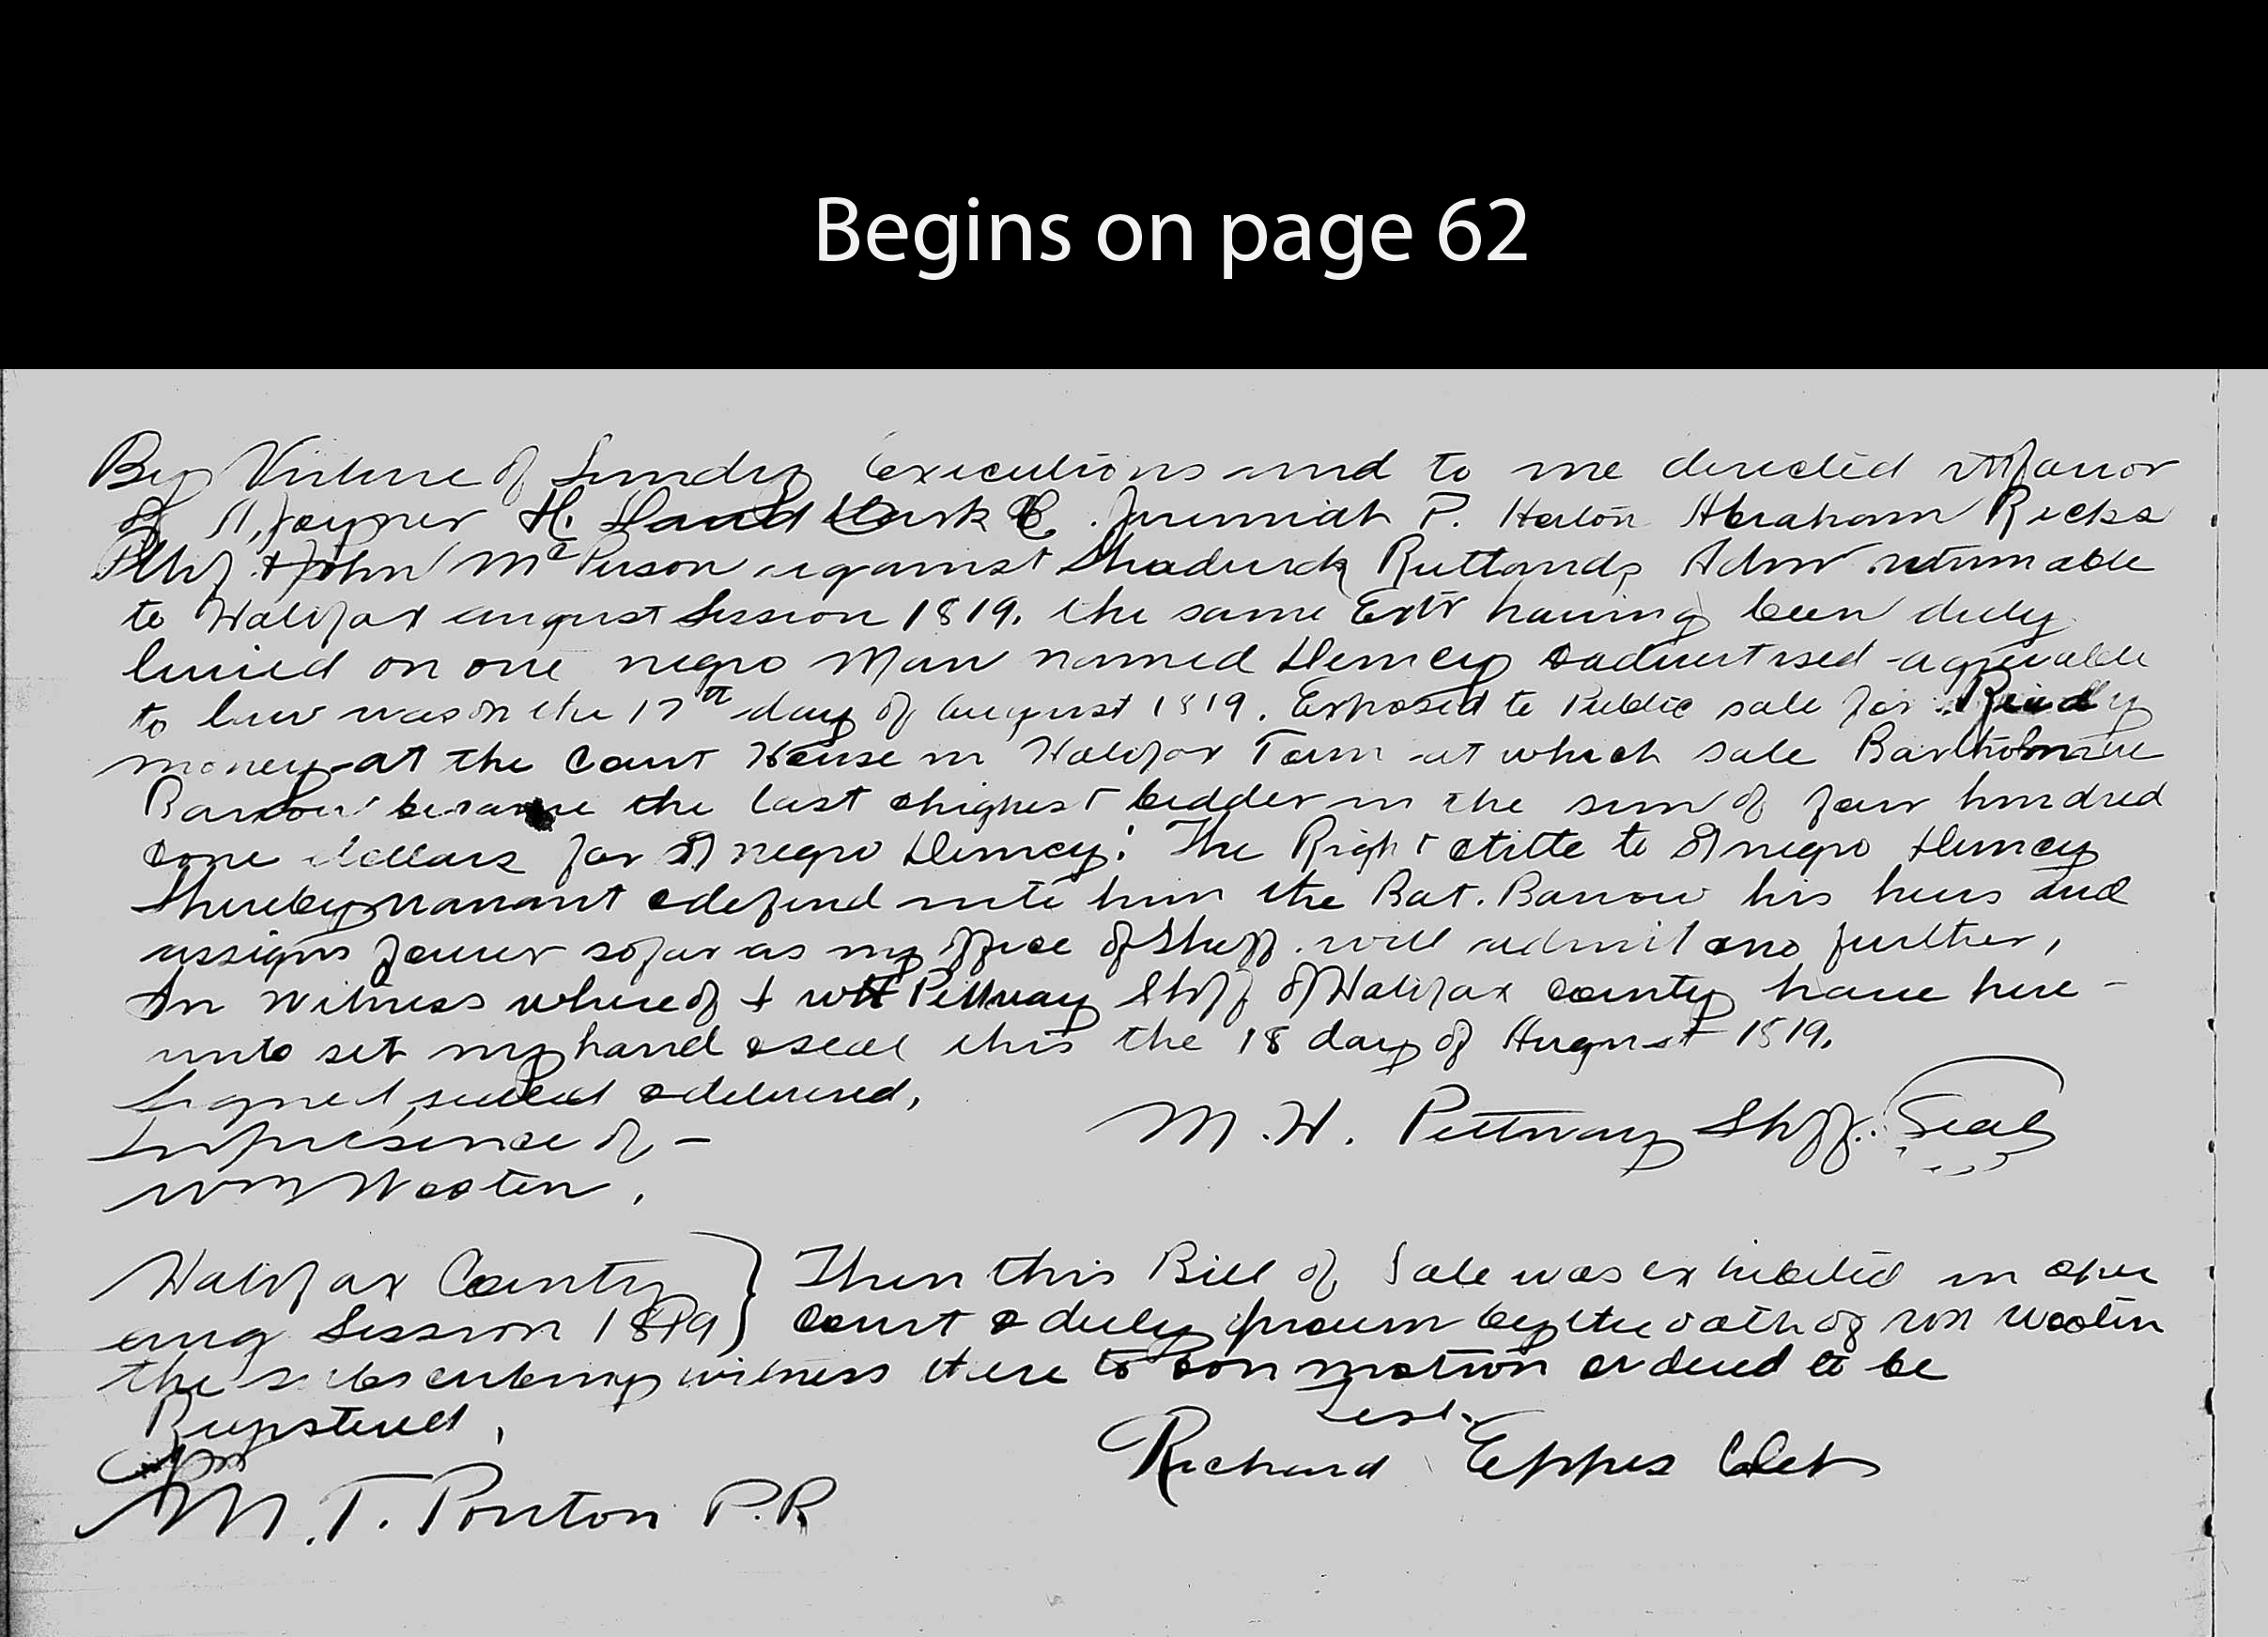 Begins on page 62
By Virtue of Sundry executions and to me directed at favor
of A, Joyner H. Jeremiah P. Abraham Ricks
& John McPerson against Shadrick Ruttands Admr returnable
to Halifax august Session 1819. the same Extr having been duly
levied on one negro man named Demcy & advertised agreeable
to law was on the 17th day of august 1819. Exposed to Public sale for Ready
money at the Court House in Halifax Town at which sale Bartholomew
Barrow became the last & highest bidder in the sum of four hundred
& one dollars for sd negro Demcy: The Right & title to sd negro Demcy
I hereby warrant & defend unto him the Bat. Barrow his heirs and
assigns forever so far as my office of Sheff. will admit & no further,
In Witness whereof I Pittway Shff of Halifax County have here-
unto set my hand & seal this the 18 day of August 1819.
Signed, sealed & delivered,
In presence of -
M. W. Pittway Shff. Seal
Wm Wooten,
Halifax County } Then this Bill of Sale was exhibited in open
aug Session 1819 } Court & duly proven by the oath of Wm Wooten
the subscribing witness there to & on motion ordered to be
Registered,
Test.
Richard Eppes
M. T. Ponton P.R